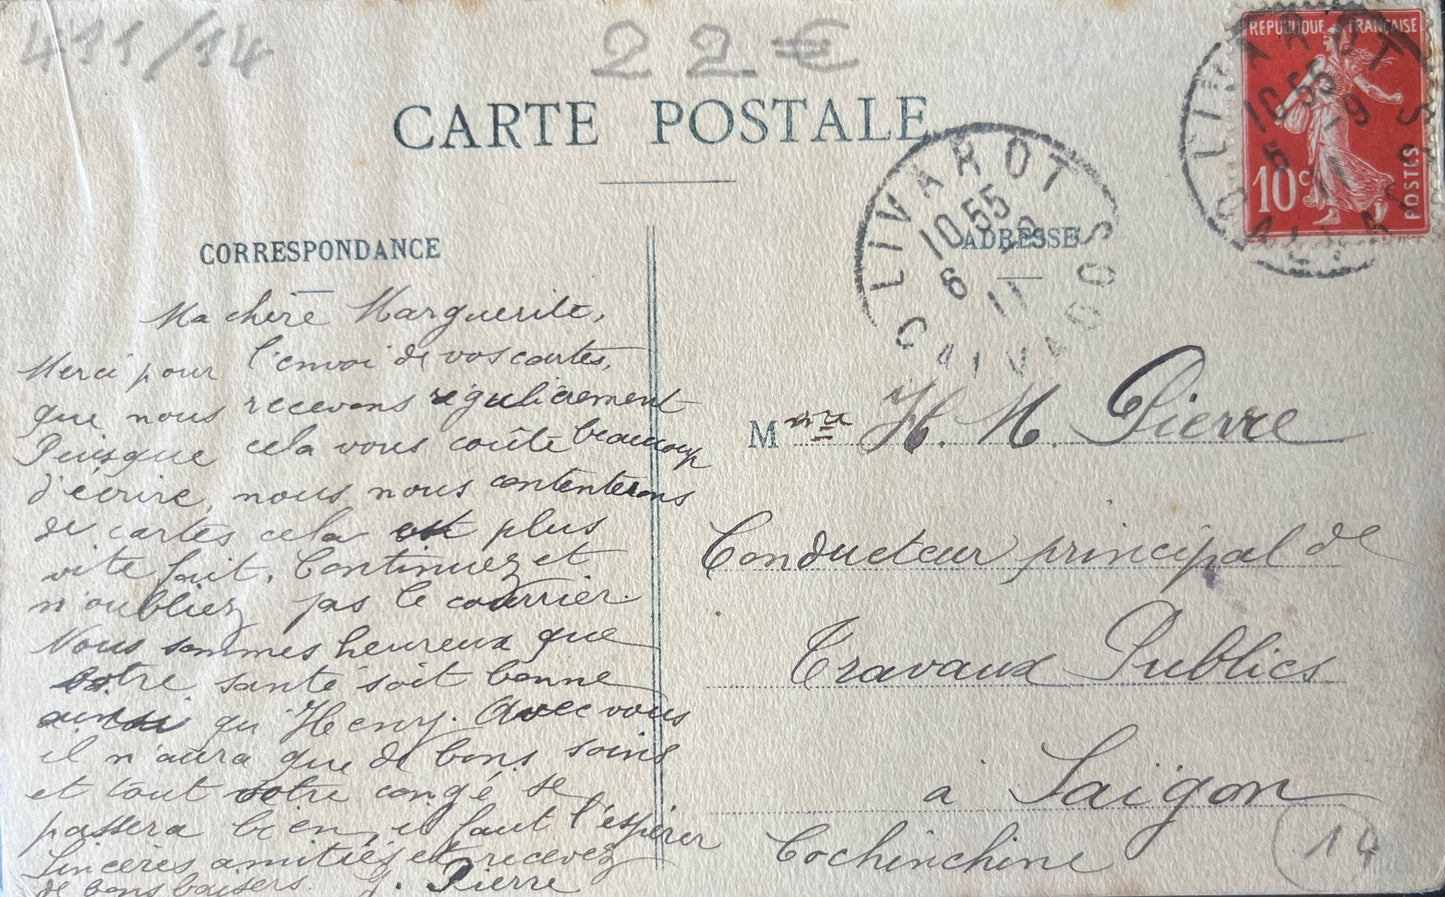 411/14
22€
CARTE POSTALE
RÉPUBLIQUE FRANÇAISE
10c
POSTES
LIVAROT
10 55
6 -9
11
CALVADOS
LIVAROT
10 55
6 -9
11
CALVADOS
CORRESPONDANCE
ADRESSE
Ma chère Marguerite,
Merci pour l'envoi de vos cartes,
que nous recevons régulièrement
Puisque cela vous coûte beaucoup
d'écrire, nous nous contenterons
de cartes cela est plus
vite fait. Continuez et
n'oubliez pas le courrier.
Nous sommes heureux que
votre santé soit bonne
ainsi qu'Henry. Avec vous
il n'aura que de bons soins
et tout votre congé se
passera bien, il faut l'espérer
Sincères amitiés et recevez
de bons baisers. J. Pierre
Mme H. M. Pierre
Conducteur principal de
Travaux Publics
à Saïgon
Cochinchine
14